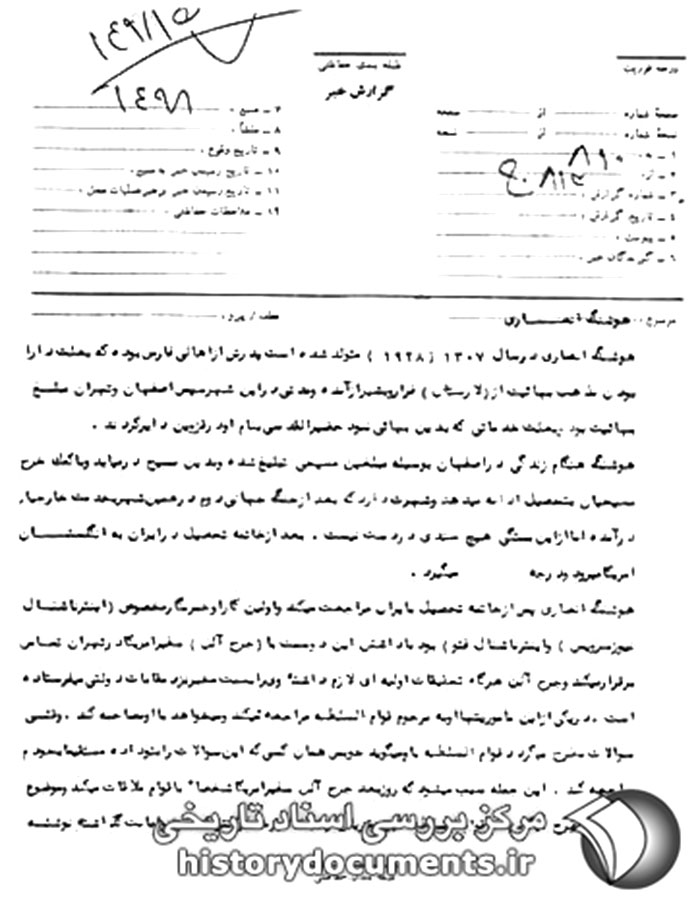 ۱۴۹/۱۵
۱۴۹۸
درجه فوریت
طبقه بندی حفاظتی
گزارش خبر
صفحه شماره از صفحه
نسخه شماره از نسخه
۱ - به ۸۱۰
۲ - از ۸۱۲ ج
۳ - شماره گزارش :
۴ - تاریخ گزارش :
۵ - پیوست :
۶ - گیرندگان خبر :
۷ - منبع :
۸ - منشأ :
۹ - تاریخ وقوع :
۱۰ - تاریخ رسیدن خبر به منبع :
۱۱ - تاریخ رسیدن خبر برهبر عملیات محل :
۱۲ - ملاحظات حفاظتی :
موضوع : هوشنگ انصاری
عطف / پیرو :
هوشنگ انصاری در سال ۱۳۰۷ ( ۱۹۲۸ ) متولد شده است پدرش از اهالی فارس بوده که بعلت دارا
بودن مذهب بهائیت از ( لارستان ) فرار و بشیراز آمده و مدتی در این شهر سپس اصفهان و تهران مبلغ
بهائیت بود و بعلت خدماتی که بدین بهائی نمود حضیرالقدسی بنام او در قزوین دایر کردند .
هوشنگ هنگام زندگی در اصفهان بوسیله مبلغین مسیحی تبلیغ شده و بدین مسیح در میاید و با کمک خرج
مسیحیان بتحصیل ادامه میدهد و شهرت دارد که بعد از جنگ جهانی دوم در همین شهر بخدمت
در آمده اما از این بستگی هیچ سندی در دست نیست . بعد از خاتمه تحصیل در ایران به انگلستان
امریکا میرود و درجه میگیرد .
هوشنگ انصاری پس از خاتمه تحصیل بایران مراجعت میکند و اولین کار او خبرنگار مخصوص ( اینترناشنال
نیوز سرویس ) و اینترناشنال فتو ) بود با داشتن این دو سمت با ( جرج آلن ) سفیر امریکا در تهران تماس
برقرار میکند و جرج آلن هرگاه تحقیقات اولیه ای لازم داشته وی را بسمت سفیر نزد مقامات دولتی میفرستاده
است . در یکی از این ماموریتها او به مرحوم قوام السلطنه مراجعه میکند و میخواهد با او مصاحبه کند . وقتی
سوالات مطرح میگردد قوام السلطنه باو میگوید خوبست همان کسی که این سوالات را بتو داده مستقیما بخودم
مراجعه کند . این جمله سبب میشود که روز بعد جرج آلن سفیر امریکا شخصا" با قوام ملاقات میکند و موضوع
مرکز بررسی اسناد تاریخی
historydocuments.ir